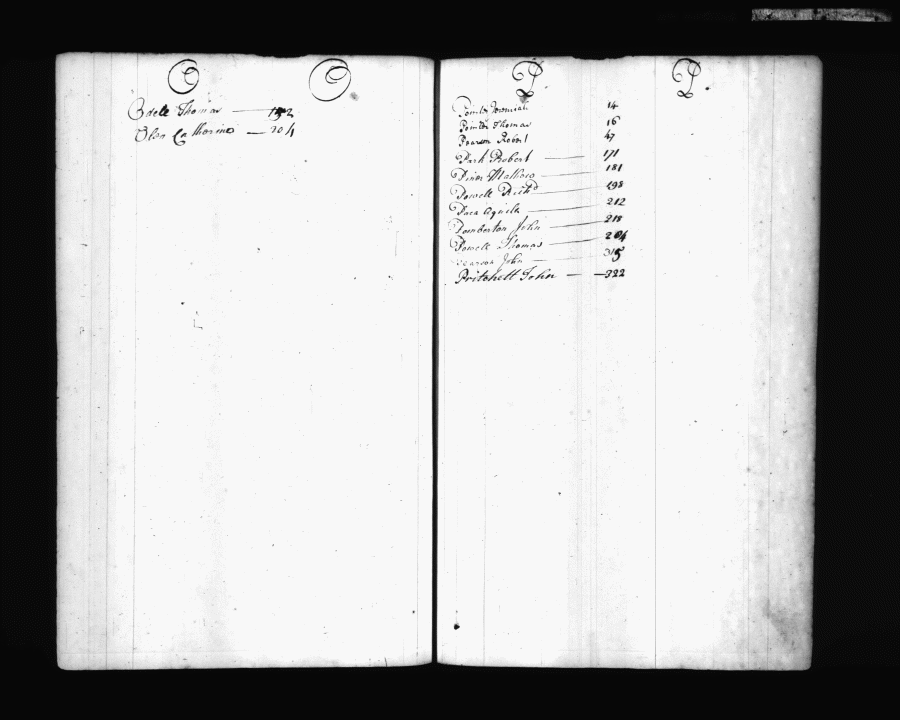 O O
Odele Thomas — 152
Olen Catherine — 204
P P
Pointer Jeremiah 14
Pointer Thomas 16
Pearson Robert 47
Park Robert — 171
Mathew — 181
Powell Richd — 198
Paca Aquila — 212
Pemberton John — 218
Powell Thomas — 284
Pearson John — 315
Pritchett John — 322